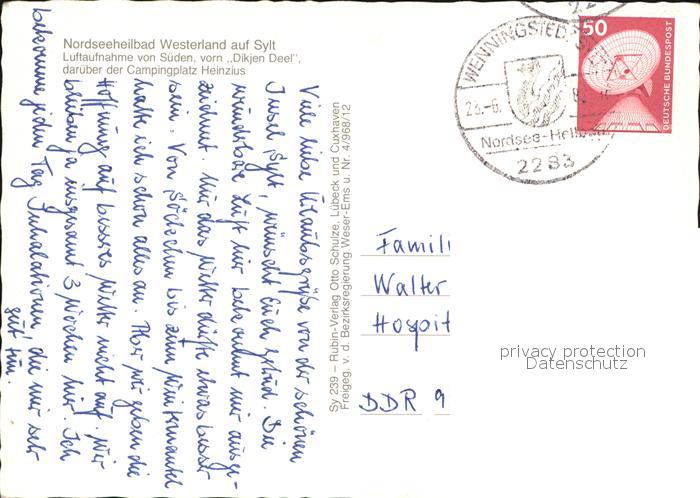 Nordseeheilbad Westerland auf Sylt
Luftaufnahme von Süden, vorn „Dikjen Deel",
darüber der Campingplatz Heinzius
Viele liebe Urlaubsgrüße von der schönen
Insel Sylt, wünscht Euch Die
wunderbare Luft hier bekommt mir ausge-
zeichnet. Nur das Wetter dürfte etwas besser
sein. Von Söckchen bis zum Wintermantel
hatte ich schon alles an. Aber wir geben die
Hoffnung auf besseres Wetter nicht auf. Wir
bleiben ja insgesamt 3 Wochen hier. Ich
bekomme jeden Tag Inhalationen, die mir sehr
gut tun.
Sy 239 – Rubin-Verlag Otto Schulze, Lübeck und Cuxhaven
Freigeg. v. d. Bezirksregierung Weser-Ems u. Nr. 4/968/12
WENNINGSTEDT
23.-6.
Nordsee-Heilbad
2283
50
DEUTSCHE BUNDESPOST
Famili
Walter
Hospit
DDR 9
privacy protection
Datenschutz